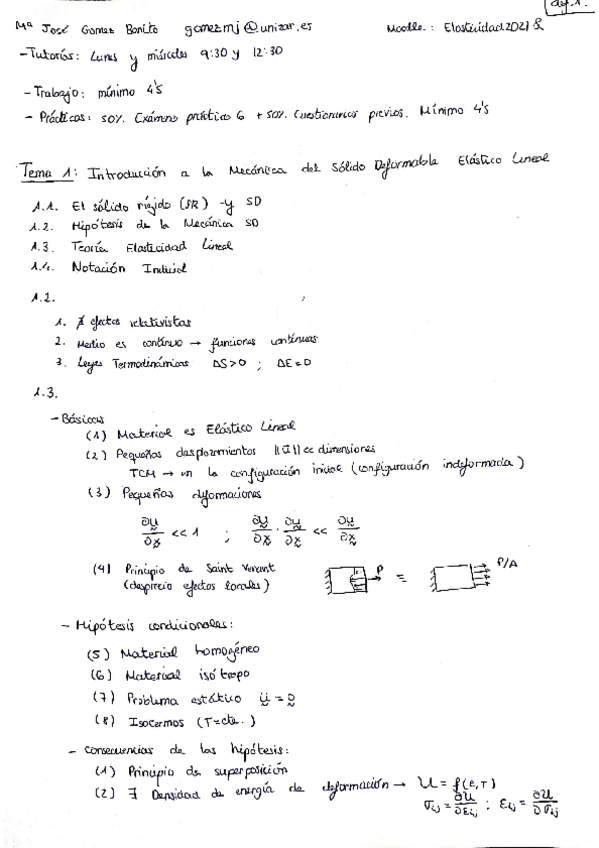 Mª José Gomez Benito gomezmj@unizar.es Moodle: Elasticidad2021
- Tutorías: Lunes y miércoles 9:30 y 12:30
- Trabajo: mínimo 4's
- Prácticas: 50%. Exámenes práctica 6 + 50%. Cuestionarios previos. Mínimo 4's
Tema 1: Introducción a la Mecánica del Sólido Deformable Elástico Lineal
1.1. El sólido rígido (SR) y SD
1.2. Hipótesis de la Mecánica SD
1.3. Teoría Elasticidad Lineal
1.4. Notación Indicial
1.2.
1. ∄ efectos relativistas
2. Medio es continuo → funciones continuas
3. Leyes Termodinámicas ΔS>0 ; ΔE=0
1.3.
- Básicas
(1) Material es Elástico Lineal
(2) Pequeños desplazamientos ||u|| << dimensiones
TCM → en la configuración inicial (configuración indeformada)
(3) Pequeñas deformaciones
∂u/∂x << 1 ; ∂u/∂x · ∂u/∂x << ∂u/∂x
(4) Principio de Saint Venant P = P/A
(desprecio efectos locales)
- Hipótesis condicionales:
(5) Material homogéneo
(6) Material isótropo
(7) Problema estático ü = 0
(8) Isotermos (T=cte.)
- Consecuencias de las hipótesis:
(1) Principio de superposición
(2) ∃ Densidad de energía de deformación → U = f(ε,T)
σij = ∂U/∂εij ; εij = ∂U/∂σij